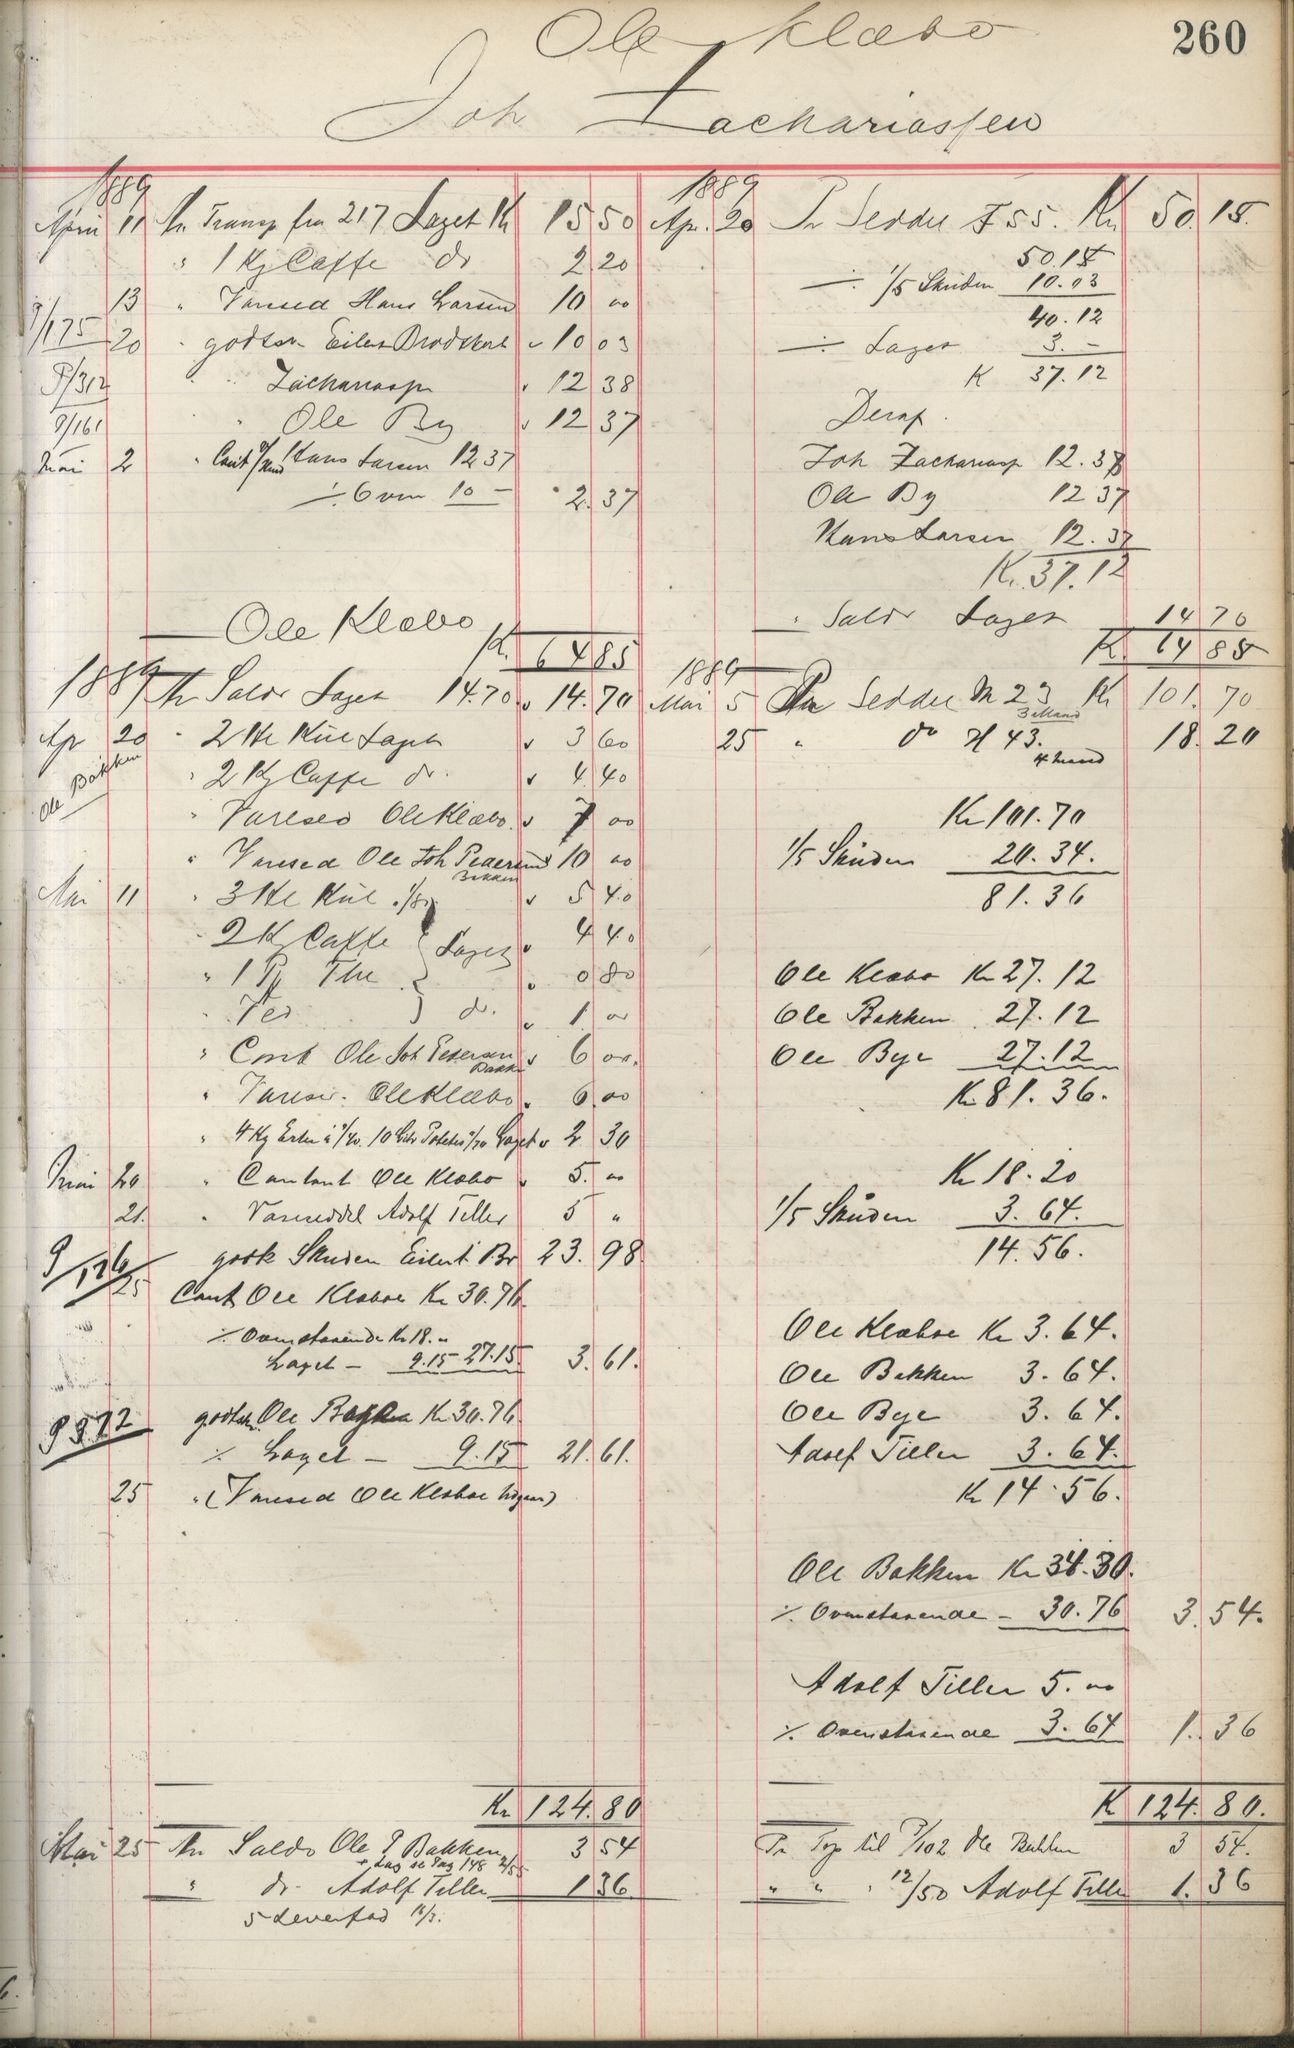 260
Ole Klæbo
Joh Zachariassen
1889
April 11 An Transp fra 217 Laget Kr 15 50
" 1 Kg Caffe do 2 20
13 " Varesed Hans Larsen 10 00
P/175 20 " godtsr Eilert Brodtkorb " 10 03
P/312 " " Zachariasp " 12 38
P/161 " Ole By " 12 37
Mai 2 " Cont Hans Larsen 12 37
÷ Oven 10 — 2.37
Ole Klæbo
Kr. 64 85
1889 An Saldo Laget 14.70 14.70
Ap 20 " 2 Hl Kul Laget 3 60
Ole Bakken
" 2 Kg Caffe do. 4 40
" Varesed Ole Klæbo 7 00
" Varesed Ole Joh Pedersen 10 00
Bakken
Mai 11 " 3 Hl Kul 1/80 5 40
" 2 Kg Caffe Laget 4 40
" 1 Pk The 0 80
" Ved do. 1. 00
" Cont Ole Joh Pedersen 6 00.
Bakken
" Varese. Ole Klæbo 6.00
" 4 Kg Erter 10 Ltr Poteter Laget 2 30
Mai 20 " Contant Ole Klæbo 5. 00
21. " Vareseddel Adolf Tiller 5 "
P/176 godk Skuden Eilert Br 23. 98
25 Cont Ole Klæboe Kr 30.76.
÷ Ovenstaaende Kr 18. "
Laget — 9.15 27.15 3.61.
P 372 godtskr. Ole Bakken Kr 30.76
÷ Laget — 9.15 21.61.
25 " (Varesed Ole Klæboe)
Kr 124.80
Mai 25 An Saldo Ole P Bakken 3 54
" do Adolf Tiller 1 36
1889
Apr. 20 Pr Seddel F 55. Kr 50.15.
50.15
÷ 1/5 Skuden 10.03
40.12
÷ Laget 3.-
K 37.12
Deraf.
Joh Zachariasp 12.38
Ole By 12 37
Hans Larsen 12.37
Kr. 37.12
" Saldo Laget 14 70
K. 64 85
1889
Mai 5 Pr Seddel M 23 Kr 101.70
3 Mand
25 " do H 43. 18.20
4 Mand
Kr 101.70
1/5 Skuden 20.34.
81.36
Ole Klæbo Kr 27.12
Ole Bakken 27.12
Ole Bye 27.12
Kr 81.36.
Kr 18.20
1/5 Skuden 3.64.
14.56.
Ole Klæboe Kr 3.64.
Ole Bakken 3.64.
Ole Bye 3.64.
Adolf Tiller 3.64.
Kr 14.56.
Ole Bakken Kr 34.30.
÷ Ovenstaaende — 30.76 3.54.
Adolf Tiller 5.00
÷ Ovenstaaende 3.64 1.36
K 124.80.
Pr Trp til P/102 Ole Bakken 3 54.
" " " 12/50 Adolf Tiller 1.36